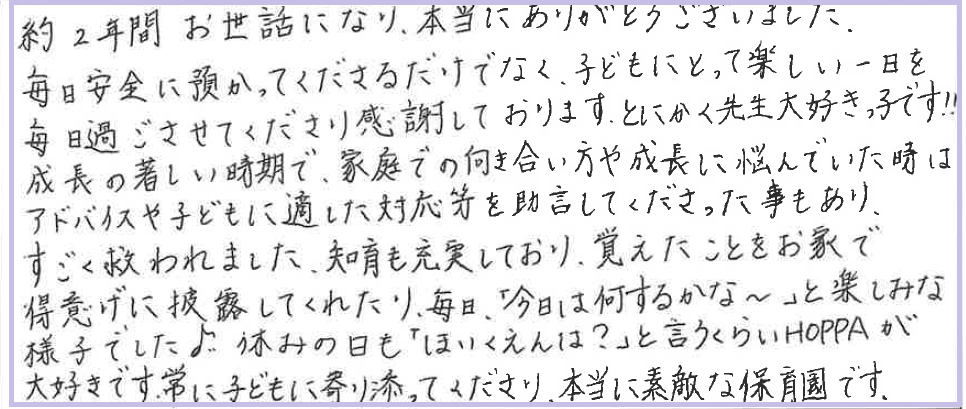 約2年間 お世話になり、本当にありがとうございました。
毎日安全に預かってくださるだけでなく、子どもにとって楽しい一日を
毎日過ごさせてくださり感謝しております。とにかく先生大好きっ子です!!
成長の著しい時期で、家庭での向き合い方や成長に悩んでいた時は
アドバイスや子どもに適した対応等を助言してくださった事もあり、
すごく救われました。知育も充実しており、覚えたことをお家で
得意げに披露してくれたり、毎日、「今日は何するかな〜」と楽しみな
様子でした♪ 休みの日も「ほいくえんは?」と言うくらいHOPPAが
大好きです。常に子どもに寄り添ってくださり、本当に素敵な保育園です。